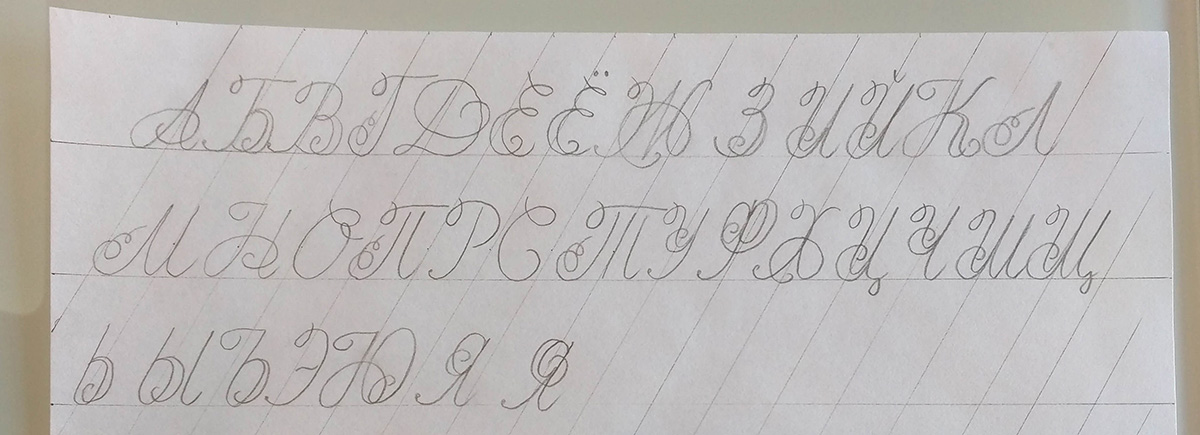 А Б В Г Д Е Ё Ж З И Й К Л
М Н О П Р С Т У Ф Х Ц Ч Ш Щ
Ь Ы Ъ Э Ю Я Я